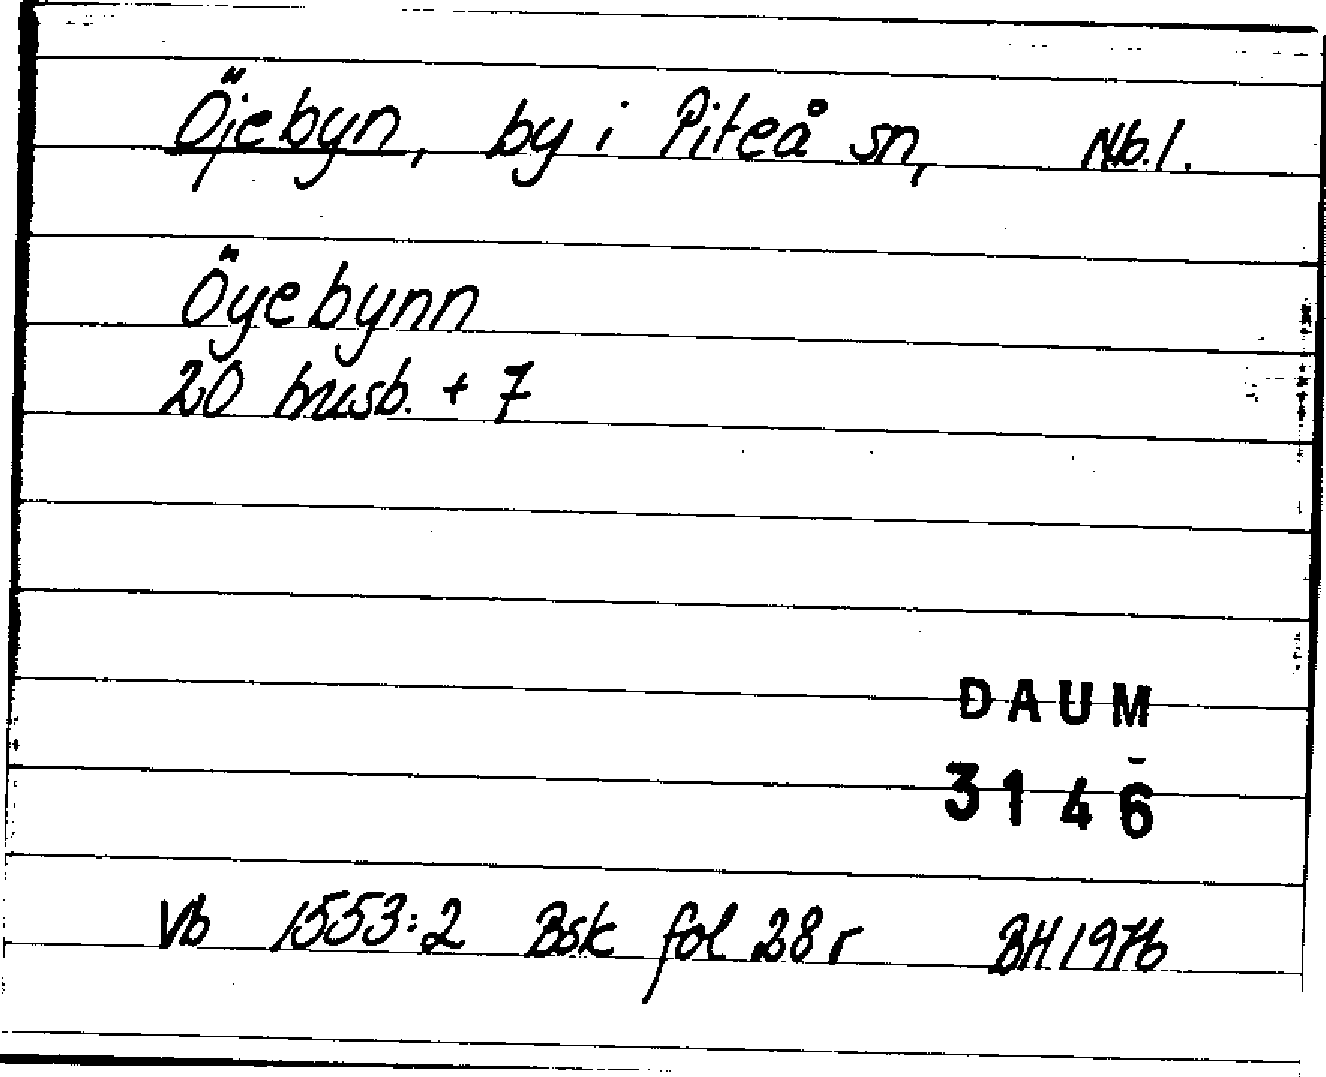 Öjebyn, by i Piteå sn, Nb.l.
Öyebynn
20 husb. + 7
DAUM
3146
Vb 1553:2 Bsk fol 28 r BH 1976